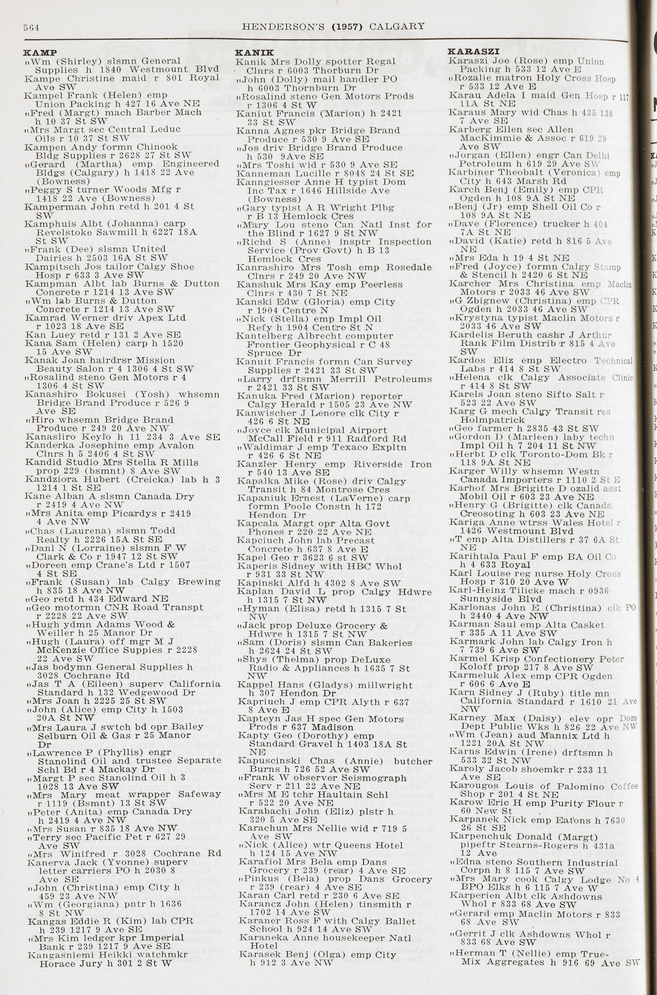 564
HENDERSON'S (1957) CALGARY
KAMP
„Wm (Shirley) slsmn General
Supplies h 1840 Westmount Blvd
Kampe Christine maid r 801 Royal
Ave SW
Kampel Frank (Helen) emp
Union Packing h 427 16 Ave NE
„Fred (Margt) mach Barber Mach
h 10 37 St SW
„Mrs Margt sec Central Leduc
Oils r 10 37 St SW
Kampen Andy formn Chinook
Bldg Supplies r 2628 27 St SW
„Gerard (Martha) emp Engineered
Bldgs (Calgary) h 1418 22 Ave
(Bowness)
„Peggy S turner Woods Mfg r
1418 22 Ave (Bowness)
Kamperman John retd h 201 4 St
SW
Kamphuis Albt (Johanna) carp
Revelstoke Sawmill h 6227 18A
St SW
„Frank (Dee) slsmn United
Dairies h 2503 16A St SW
Kampitsch Jos tailor Calgy Shoe
Hosp r 633 3 Ave SW
Kampman Albt lab Burns & Dutton
Concrete r 1214 13 Ave SW
„Wm lab Burns & Dutton
Concrete r 1214 13 Ave SW
Kamrad Werner driv Apex Ltd
r 1023 18 Ave SE
Kan Luey retd r 131 2 Ave SE
Kana Sam (Helen) carp h 1520
15 Ave SW
Kanak Joan hairdrsr Mission
Beauty Salon r 4 1306 4 St SW
„Rosalind steno Gen Motors r 4
1306 4 St SW
Kanashiro Bokusei (Yosh) whsemn
Bridge Brand Produce r 526 9
Ave SE
„Hiro whsemn Bridge Brand
Produce r 249 20 Ave NW
Kanasliro Keylo h 11 234 3 Ave SE
Kanderka Josephine emp Avalon
Clnrs h 5 2406 4 St SW
Kandid Studio Mrs Stella R Mills
prop 229 (bsmnt) 8 Ave SW
Kandziora Hubert (Creicka) lab h 3
1214 1 St SE
Kane Alban A slsmn Canada Dry
r 2419 4 Ave NW
„Mrs Anita emp Picardys r 2419
4 Ave NW
„Chas (Laurena) slsmn Todd
Realty h 2226 15A St SE
„Danl N (Lorraine) slsmn F W
Clark & Co r 1947 12 St SW
„Doreen emp Crane's Ltd r 1507
4 St SE
„Frank (Susan) lab Calgy Brewing
h 835 18 Ave NW
„Geo retd h 434 Edward NE
„Geo motormn CNR Road Transpt
r 2228 22 Ave SW
„Hugh ydmn Adams Wood &
Weiller h 25 Manor Dr
„Hugh (Laura) off mgr M J
McKenzie Office Suppies r 2228
22 Ave SW
„Jas bodymn General Supplies h
3028 Cochrane Rd
„Jas T A (Eileen) superv California
Standard h 132 Wedgewood Dr
„Mrs Joan h 2225 25 St SW
„John (Alice) emp City h 1503
20A St NW
„Mrs Laura J swtch bd opr Bailey
Selburn Oil & Gas r 25 Manor
Dr
„Lawrence P (Phyllis) engr
Stanolind Oil and trustee Separate
Schl Bd r 4 Mackay Dr
„Margt P sec Stanolind Oil h 3
1028 13 Ave SW
„Mrs Mary meat wrapper Safeway
r 1119 (Bsmnt) 13 St SW
„Peter (Anita) emp Canada Dry
h 2419 4 Ave NW
„Mrs Susan r 835 18 Ave NW
„Terry sec Pacific Pet r 627 29
Ave SW
„Mrs Winifred r 3028 Cochrane Rd
Kanerva Jack (Yvonne) superv
letter carriers PO h 2030 8
Ave SE
„John (Christina) emp City h
459 23 Ave NW
„Wm (Georgiana) pntr h 1636
8 St NW
Kangas Eddie R (Kim) lab CPR
h 239 1217 9 Ave SE
„Mrs Kim ledger kpr Imperial
Bank r 239 1217 9 Ave SE
Kangasniemi Heikki watchmkr
Horace Jury h 301 2 St W
KANIK
Kanik Mrs Dolly spotter Regal
Clnrs r 6003 Thorburn Dr
„John (Dolly) mail handler PO
h 6003 Thornburn Dr
„Rosalind steno Gen Motors Prods
r 1306 4 St W
Kaniut Francis (Marion) h 2421
33 St SW
Kanna Agnes pkr Bridge Brand
Produce r 530 9 Ave SE
„Jos driv Bridge Brand Produce
h 530 9Ave SE
„Mrs Toshi wid r 530 9 Ave SE
Kanneman Lucille r 8048 24 St SE
Kanngiesser Anne H typist Dom
Inc Tax r 1646 Hillside Ave
(Bowness)
„Gary typist A R Wright Plbg
r B 13 Hemlock Cres
„Mary Lou steno Can Natl Inst for
the Blind r 1627 9 St NW
„Richd S (Anne) insptr Inspection
Service (Prov Govt) h B 13
Hemlock Cres
Kanrashiro Mrs Tosh emp Rosedale
Clnrs r 249 20 Ave NW
Kanshuk Mrs Kay emp Peerless
Clnrs r 430 7 St NE
Kanski Edw (Gloria) emp City
r 1904 Centre N
„Nick (Stella) emp Impl Oil
Refy h 1904 Centre St N
Kantelberg Albrecht computer
Frontier Geophysical r C 48
Spruce Dr
Kanuit Francis formn Can Survey
Supplies r 2421 33 St SW
„Larry drftsmn Merrill Petroleums
r 2421 33 St SW
Kanuka Fred (Marion) reporter
Calgy Herald r 1505 23 Ave NW
Kanwischer J Lenore clk City r
426 6 St NE
„Joyce clk Municipal Airport
McCall Field r 911 Radford Rd
„Waldimar J emp Texaco Expltn
r 426 6 St NE
Kanzler Henry emp Riverside Iron
r 540 13 Ave SE
Kapalka Mike (Rose) driv Calgy
Transit h 84 Montrose Cres
Kapaniuk Ernest (LaVerne) carp
formn Poole Constn h 172
Hendon Dr
Kapcala Margt opr Alta Govt
Phones r 220 22 Ave NE
Kapciuch John lab Precast
Concrete h 637 8 Ave E
Kapel Geo r 3623 6 st SW
Kaperis Sidney with HBC Whol
r 931 33 St NW
Kapinski Alfd h 4302 8 Ave SW
Kaplan David L prop Calgy Hdwre
h 1315 7 St NW
„Hyman (Elisa) retd h 1315 7 St
NW
„Jack prop Deluxe Grocery &
Hdwre h 1315 7 St NW
„Sam (Doris) slsmn Can Bakeries
h 2624 24 St SW
„Shys (Thelma) prop DeLuxe
Radio & Appliances h 1635 7 St
NW
Kappel Hans (Gladys) millwright
h 307 Hendon Dr
Kapriuch J emp CPR Alyth r 637
8 Ave E
Kapteyn Jas H spec Gen Motors
Prods r 637 Madison
Kapty Geo (Dorothy) emp
Standard Gravel h 1403 18A St
NE
Kapuscinski Chas (Annie) butcher
Burns h 726 52 Ave SW
„Frank W observer Seismograph
Serv r 211 22 Ave NE
„Mrs M E tchr Haultain Schl
r 522 20 Ave NE
Karabachi John (Eliz) plstr h
320 5 Ave SE
Karachun Mrs Nellie wid r 719 5
Ave SW
„Nick (Alice) wtr Queens Hotel
h 124 15 Ave NW
Karafiol Mrs Bela emp Dans
Grocery r 239 (rear) 4 Ave SE
„Pinkus (Bela) prop Dans Grocery
r 239 (rear) 4 Ave SE
Karan Carl retd r 230 6 Ave SE
Karancz John (Helen) tinsmith r
1702 14 Ave SW
Karaner Ross F with Calgy Ballet
School h 924 14 Ave SW
Karaneka Anne housekeeper Natl
Hotel
Karasek Benj (Olga) emp City
h 912 3 Ave NW
KARASZI
Karaszi Joe (Rose) emp Union
Packing h 533 12 Ave E
„Rozalie matron Holy Cross Hosp
r 533 12 Ave E
Karau Adela I maid Gen Hosp r 117
11A St NE
Karaus Mary wid Chas h 435 138
7 Ave SE
Karberg Ellen sec Allen
MacKimmie & Assoc r 619 29
Ave SW
„Jorgan (Ellen) engr Can Delhi
Petroleum h 619 29 Ave SW
Karbiner Theobalt (Veronica) emp
City h 643 Marsh Rd
Karch Benj (Emily) emp CPR
Ogden h 108 9A St NE
„Benj (Jr) emp Shell Oil Co r
108 9A St NE
„Dave (Florence) trucker h 404
7A St NE
„David (Katie) retd h 816 5 Ave
NE
„Mrs Eda h 19 4 St NE
„Fred (Joyce) formn Calgy Stamp
& Stencil h 2420 6 St NE
Karcher Mrs Christina emp Maclin
Motors r 2033 46 Ave SW
„G Zbignew (Christina) emp CPR
Ogden h 2033 46 Ave SW
„Krystyna typist Maclin Motors r
2033 46 Ave SW
Kardelis Beruth cashr J Arthur
Rank Film Distrib r 815 4 Ave
SW
Kardos Eliz emp Electro Technical
Labs r 414 8 St SW
„Helena clk Calgy Associate Clinic
r 414 8 St SW
Karels Joan steno Sifto Salt r
523 22 Ave SW
Karg G mech Calgy Transit res
Holmpatrick
„Geo farmer h 2835 43 St SW
„Gordon D (Marleen) laby techn
Impl Oil h 7 204 11 St NW
„Herbt D clk Toronto-Dom Bk r
118 9A St NE
Karger Willy whsemn Westn
Canada Importers r 1110 2 St E
Karhof Mrs Brigitte D ozalid asst
Mobil Oil r 603 23 Ave NE
„Henry G (Brigitte) clk Canada
Creosoting h 603 23 Ave NE
Kariga Anne wtrss Wales Hotel r
1426 Westmount Blvd
„T emp Alta Distillers r 37 6A St
NE
Karihtala Paul F emp BA Oil Co
h 4 633 Royal
Karl Louise reg nurse Holy Cross
Hosp r 310 20 Ave W
Karl-Heinz Tilicke mach r 0936
Sunnyside Blvd
Karlonas John E (Christina) clk PO
h 2440 4 Ave NW
Karman Saul emp Alta Casket
r 335 A 11 Ave SW
Karmark John lab Calgy Iron h
7 739 6 Ave SW
Karmel Krisp Confectionery Peter
Koloff prop 217 8 Ave SW
Karmeluk Alex emp CPR Ogden
r 606 6 Ave E
Karn Sidney J (Ruby) title mn
California Standard r 1610 21 Ave
NW
Karney Max (Daisy) elev opr Dom
Dept Public Wks h 826 22 Ave NW
„Wm (Jean) aud Mannix Ltd h
1221 20A St NW
Karns Edwin (Irene) drftsmn h
533 32 St NW
Karoly Jacob shoemkr r 233 11
Ave SE
Karougos Louis of Palomino Coffee
Shop r 201 4 St NE
Karow Eric H emp Purity Flour r
60 New St
Karpanek Nick emp Eatons h 7630
26 St SE
Karpenchuk Donald (Margt)
pipeftr Stearns-Rogers h 431a
12 Ave
„Edna steno Southern Industrial
Corpn h 8 115 7 Ave SW
„Mrs Mary cook Calgy Lodge No 4
BPO Elks h 6 115 7 Ave W
Karperien Albt clk Ashdowns
Whol r 833 68 Ave SW
„Gerard emp Maclin Motors r 833
68 Ave SW
„Gerrit J clk Ashdowns Whol r
833 68 Ave SW
„Herman T (Nellie) emp True-
Mix Aggregates h 916 69 Ave SW